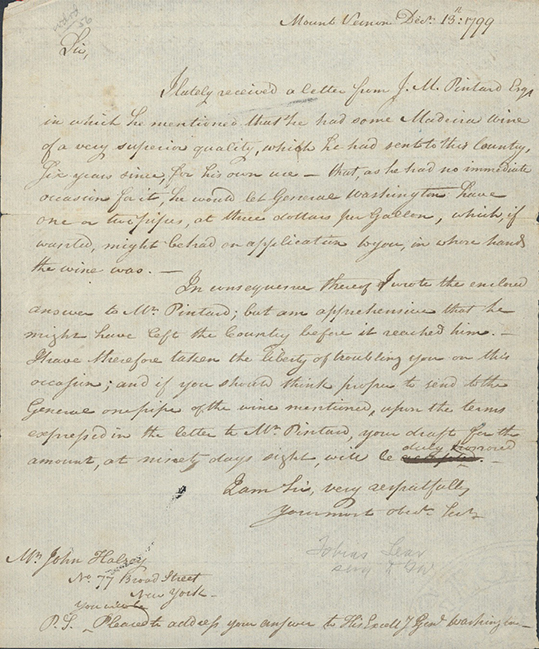 Mount Vernon Decr. 13th: 1799
Sir,
I lately received a letter from J. M. Pintard Esqr
in which he mentioned that he had some Madeira wine
of a very superior quality, which he had sent to this Country,
six years since, for his own use — that, as he had no immediate
occasion for it, he would let General Washington have
one or two pipes, at three dollars per Gallon, which, if
wanted, might be had on application to you, in whose hands
the wine was. —
In consequence thereof I wrote the enclosed
answer to Mr. Pintard; but am apprehensive that he
might have left the Country before it reached him. —
I have therefore taken the liberty of troubling you on this
occasion; and if you should think proper to send to the
General one pipe of the wine mentioned, upon the terms
expressed in the letter to Mr. Pintard, your draft for the
amount, at ninety days sight, will be duly honored
I am Sir, very respectfully,
Your most Obedt. Servt
Tobias Lear
Mr. John Halsey
No. 77 Broad Street
New York —
P.S. Please to address your answer to His Excelly Genl. Washington —